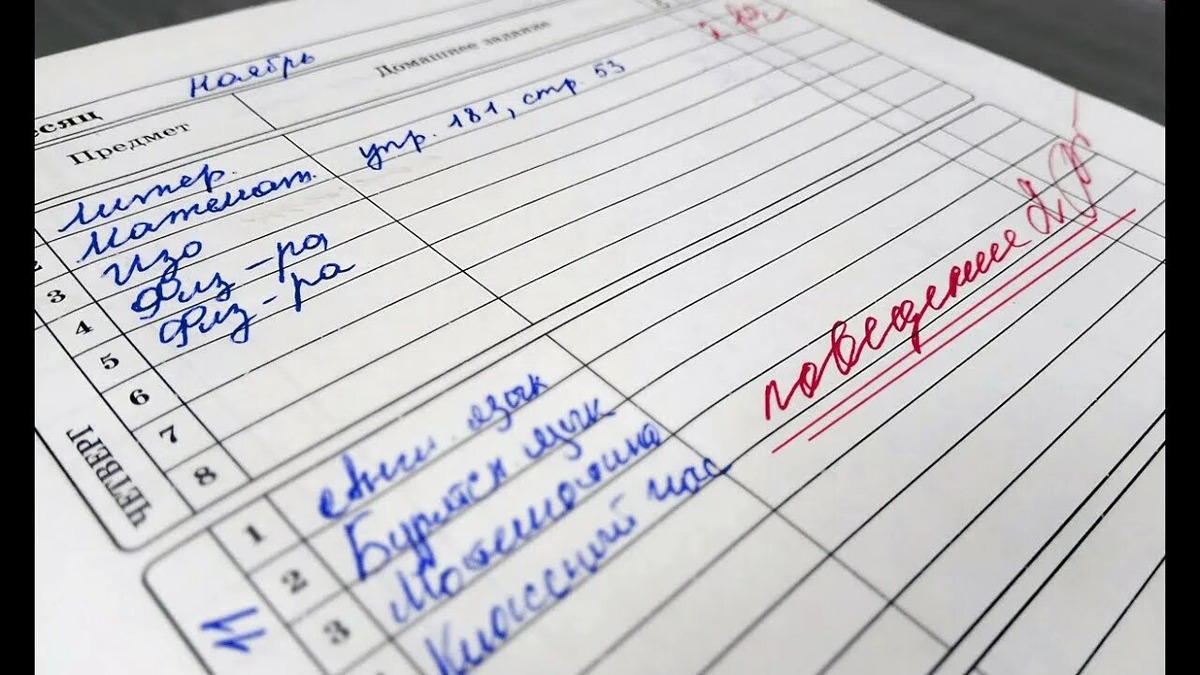 есяц ноябрь
Предмет Домашнее задание
литер.
математ. упр. 181, стр. 53
3 Изо
4 Физ-ра
5 Физ-ра
6
7
8
ЧЕТВЕРГ
поведение 2
1 Англ. язык
2 Бурятск. язык
3 Математика
Классный час
11